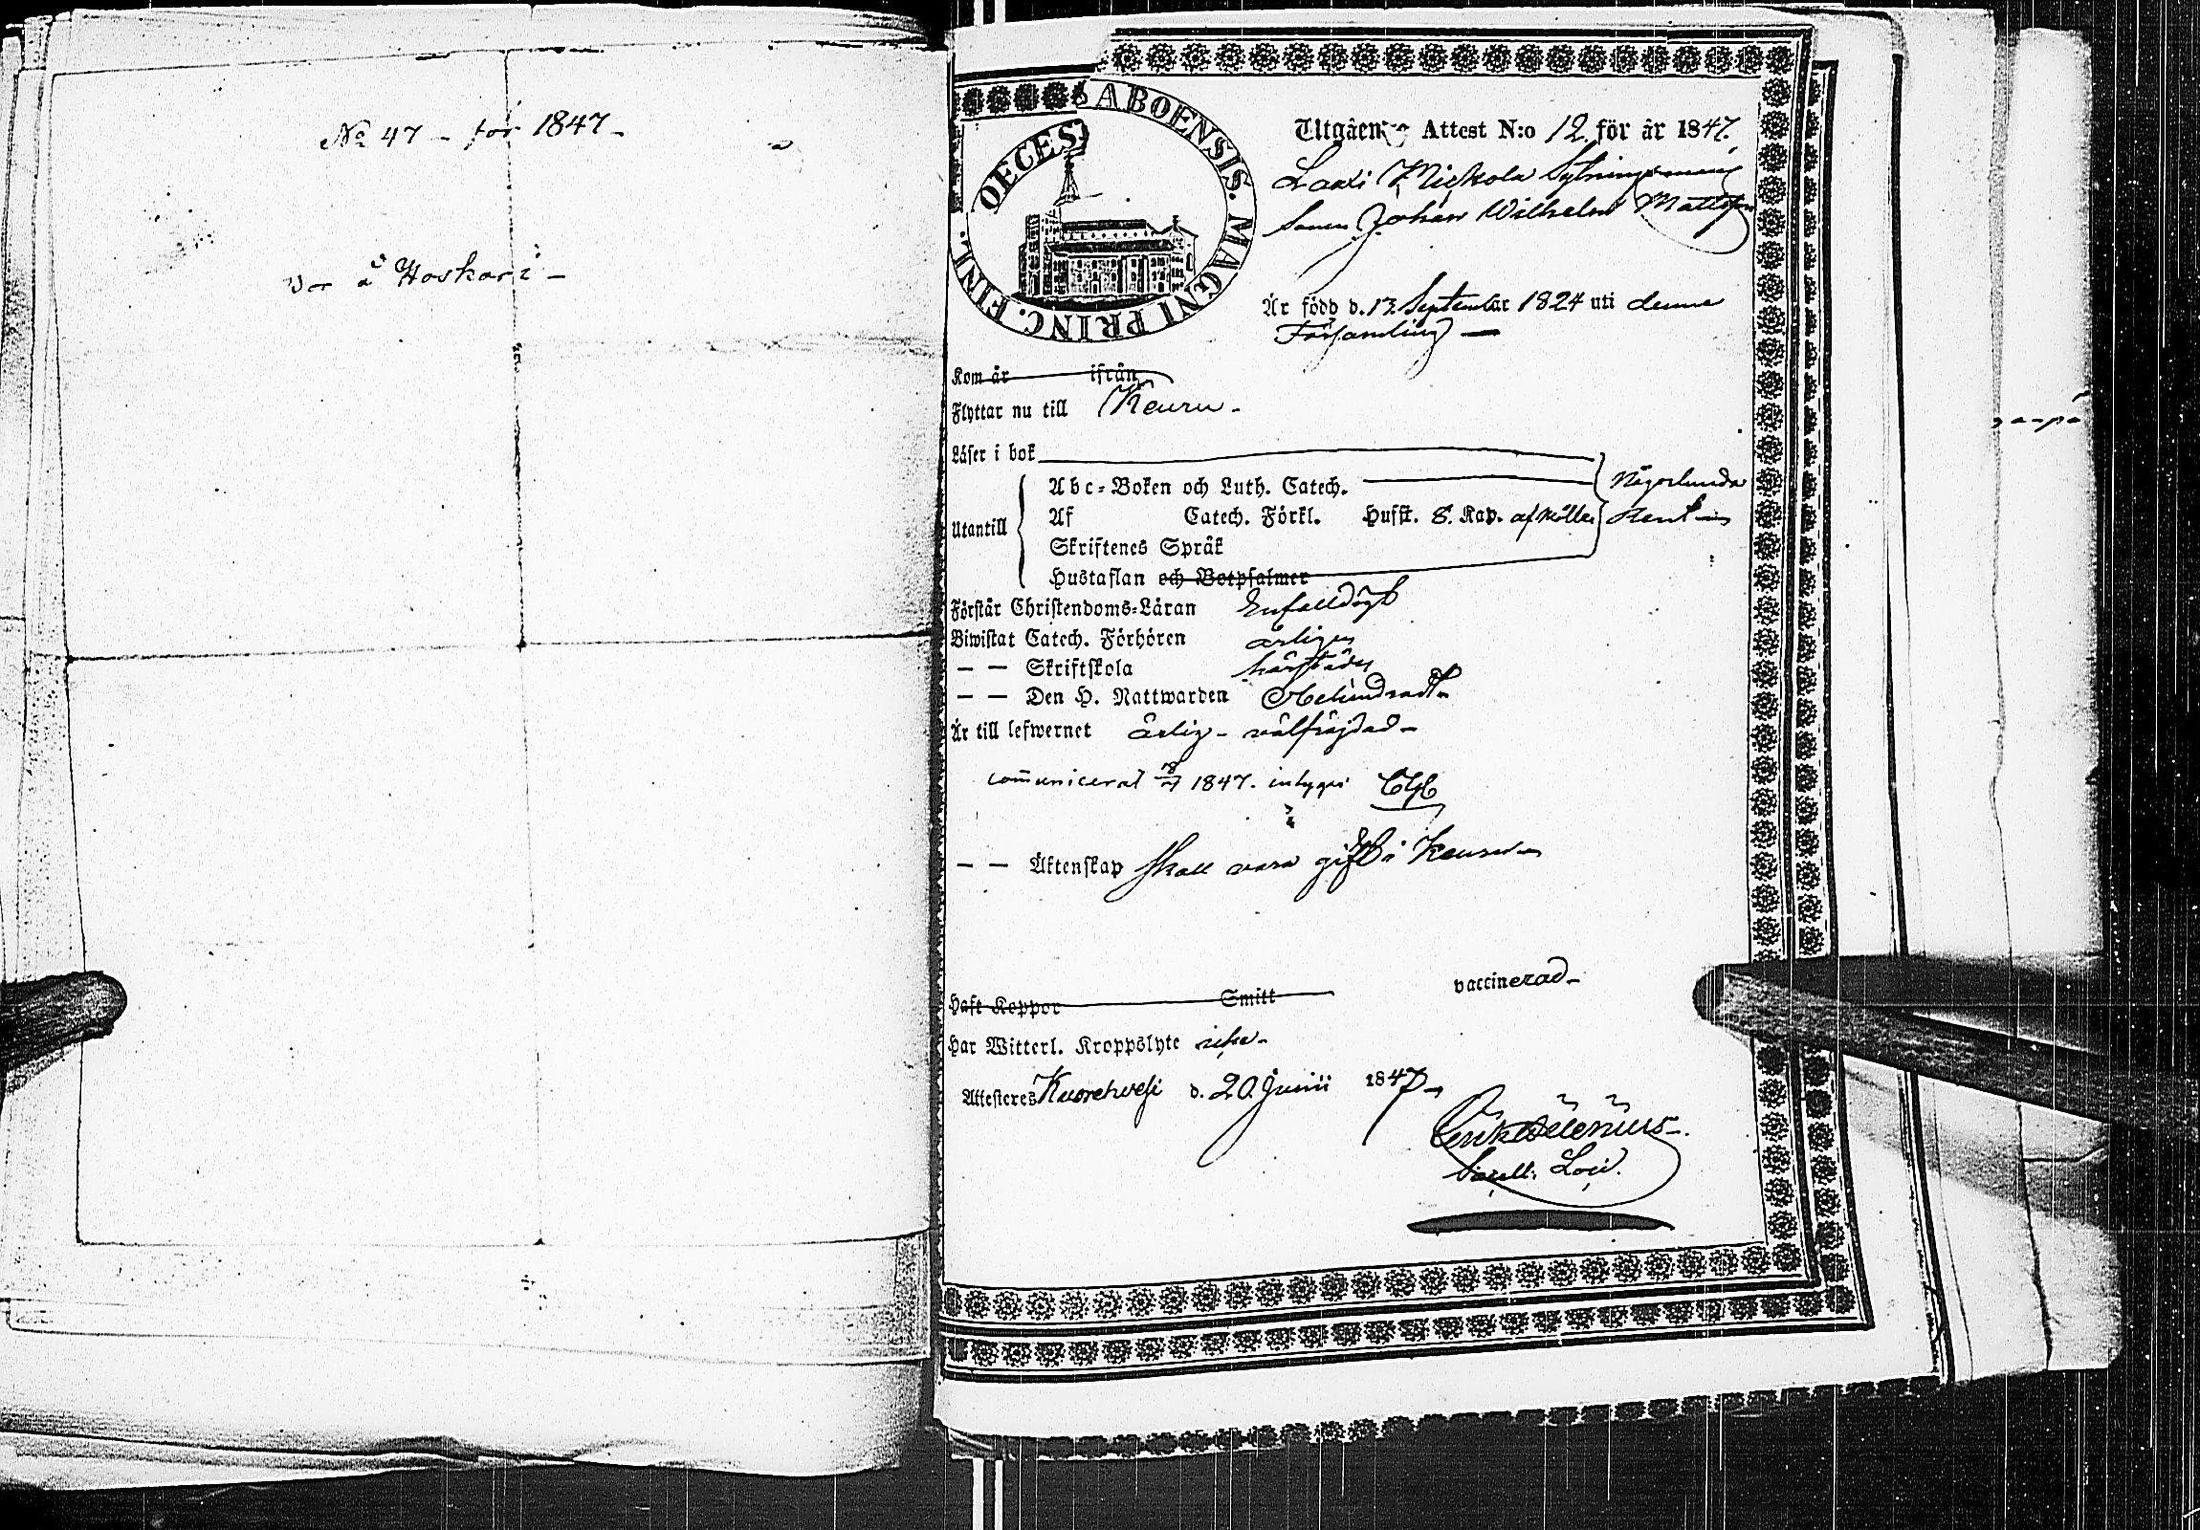 No 47 - för 1847 -
var å Hoskari -
DECES. ABOENSIS. MAGNI PRINC. FINL.
Utgåen Attest N:o 12 för år 1847.
Laxi Mickola Sytningsmans
Sonen Johan Wilhelm Mattss
Är född d. 13 September 1824 uti denne
Församling -
Kom år ifrån
Flyttar nu till Keuru -
Läser i bok
Någorlunda
Abc-Boken och Luth. Catech.
Utantill
Af Catech. Förkl. Husst. 8. Kap.
Skriftenes Språk
Hustaflan och Botpsalmer
Förstår Christendoms-Läran Enfaldigt
Biwistat Catech. Förhören årligen
— — Skriftskola härstädes
— — Den H. Nattwarden Obehindradt -
Är till lefwernet ärlig - välfräjdad -
communicerat 18/7 1847. intygar
— — Äktenskap skall vara gift i Keuru
Haft Koppor Smitt vaccinerad -
Har Witterl. Kroppslyte icke -
Attesteres Kuorehvesi d. 20 Junii 1847 -
Erik Delenius -
Sacell. Loci.